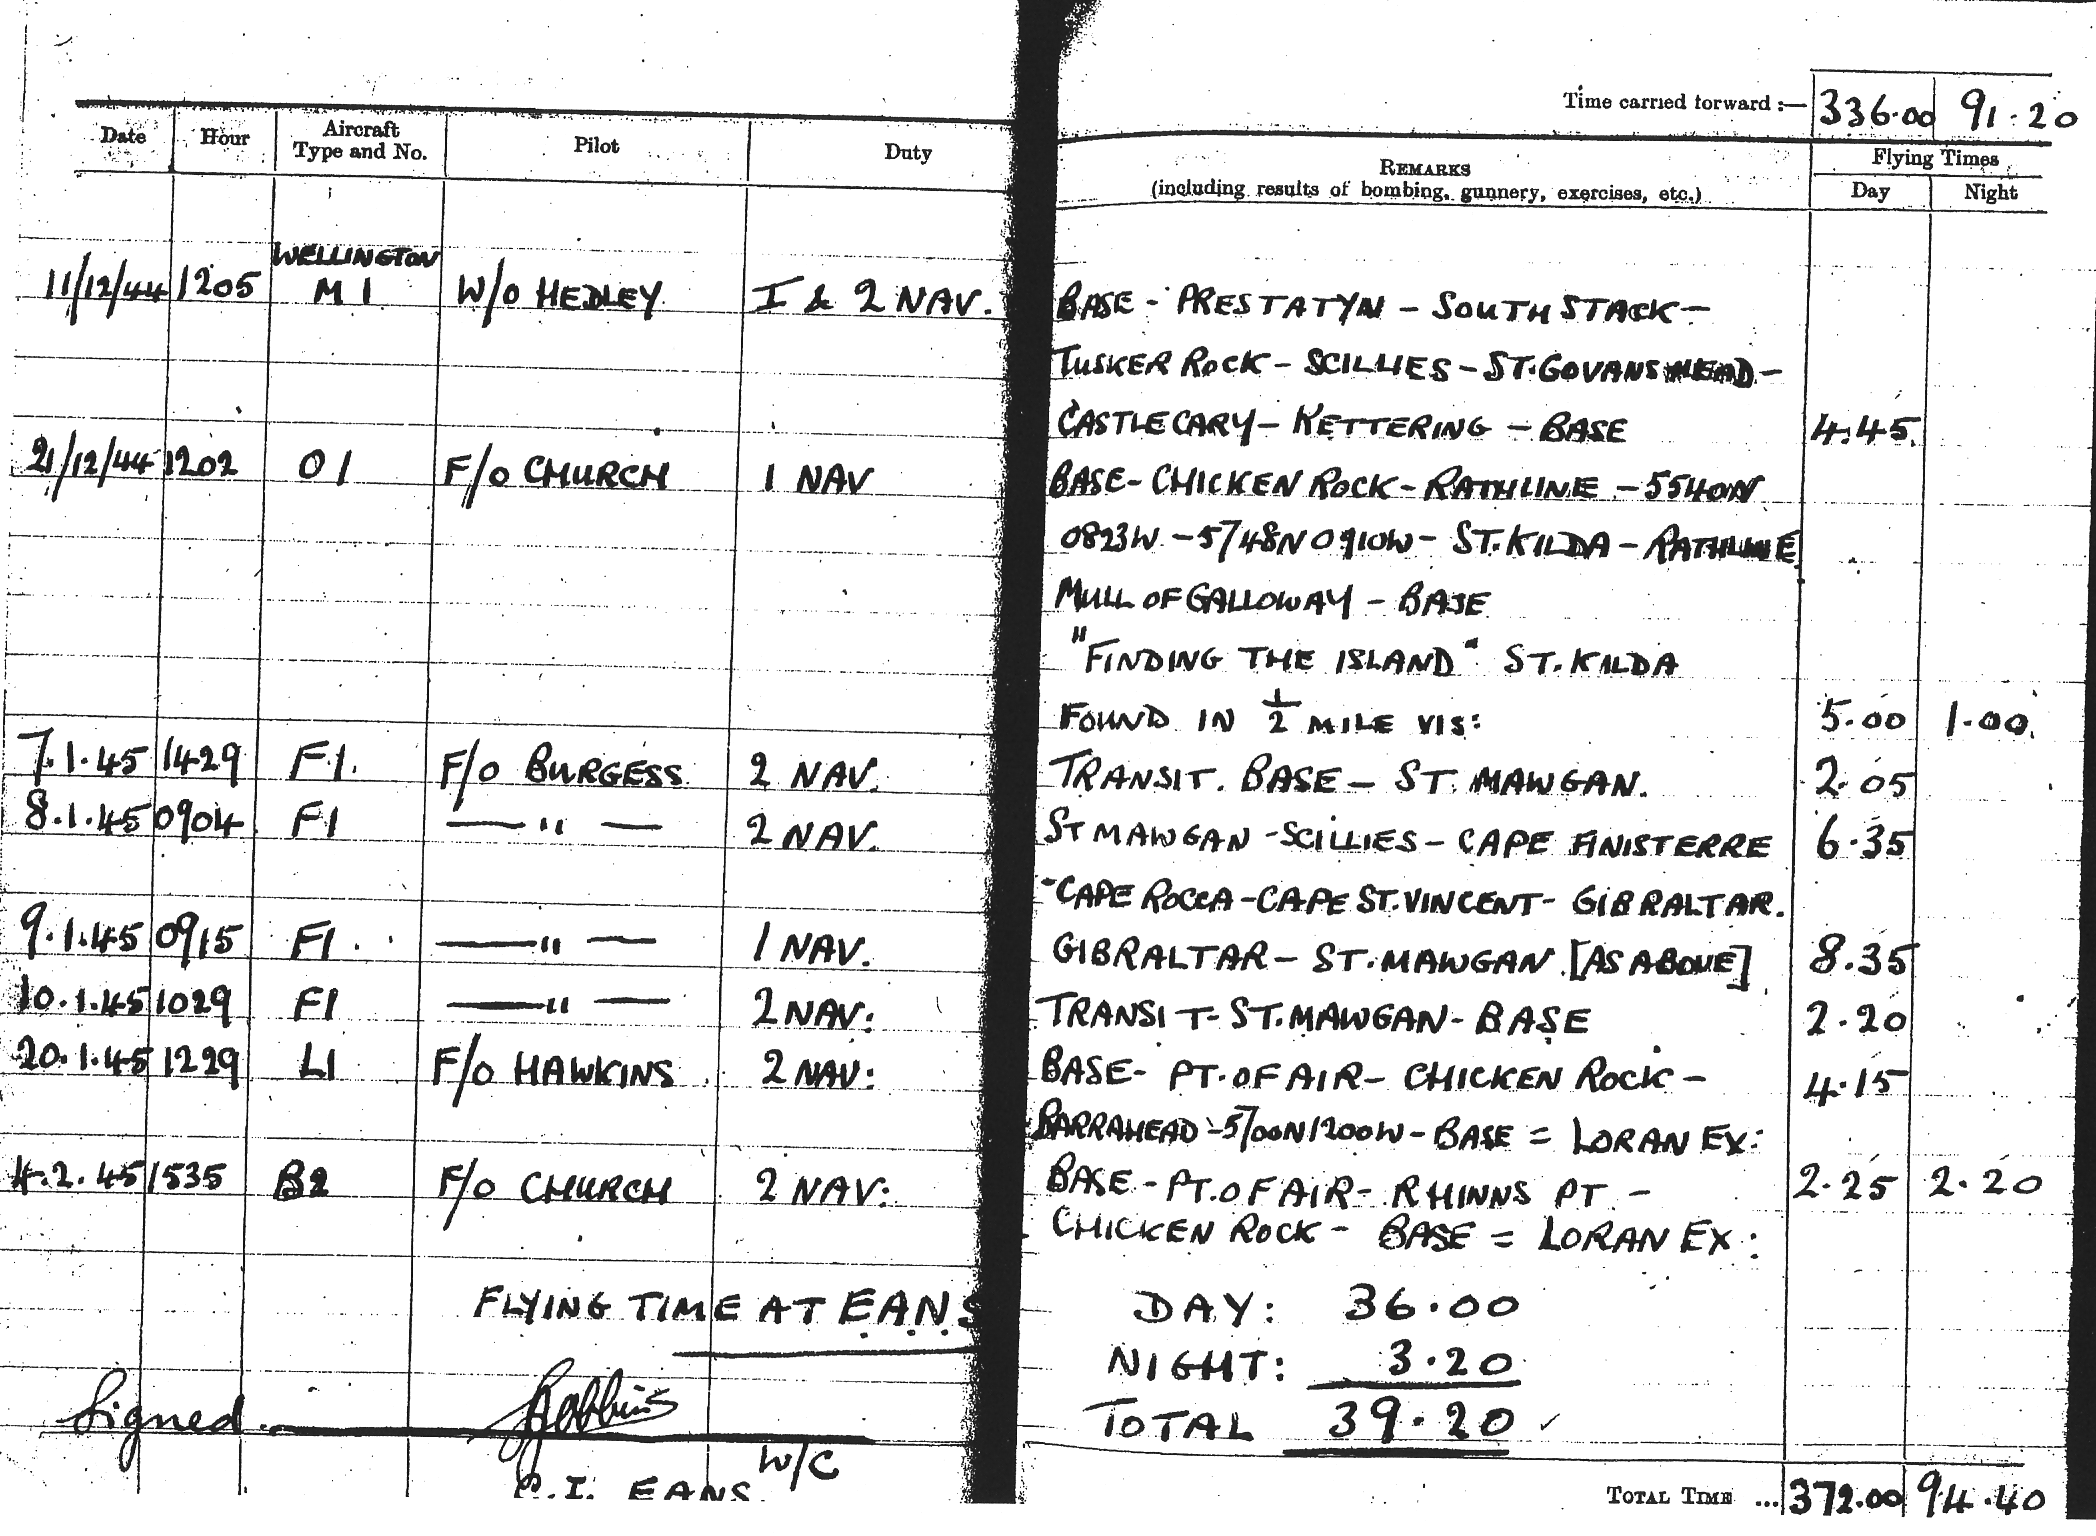 Time carried forward :— 336.00 91.20
Date Hour Aircraft Type and No. Pilot Duty REMARKS (including results of bombing, gunnery, exercises, etc.) Flying Times Day Night
WELLINGTON
11/12/44 1205 M1 W/O HEDLEY I & 2 NAV. BASE - PRESTATYN - SOUTH STACK -
TUSKER ROCK - SCILLIES - ST. GOVANS HEAD -
CASTLE CARY - KETTERING - BASE 4.45.
21/12/44 1202 O1 F/O CHURCH 1 NAV BASE - CHICKEN ROCK - RATHLINE - 5540N
0823W - 5748N 0910W - ST. KILDA - RATHLINE
MULL OF GALLOWAY - BASE
"FINDING THE ISLAND" ST. KILDA
FOUND IN ½ MILE VIS: 5.00 1.00.
7.1.45 1429 F1. F/O BURGESS 2 NAV. TRANSIT. BASE - ST. MAWGAN. 2.05
8.1.45 0904 F1 — " — 2 NAV. ST MAWGAN - SCILLIES - CAPE FINISTERRE 6.35
- CAPE ROCCA - CAPE ST. VINCENT - GIBRALTAR.
9.1.45 0915 F1. — " — 1 NAV. GIBRALTAR - ST. MAWGAN. [AS ABOVE] 8.35
10.1.45 1029 F1 — " — 2 NAV: TRANSIT - ST. MAWGAN - BASE 2.20
20.1.45 1229 L1 F/O HAWKINS 2 NAV: BASE - PT. OF AIR - CHICKEN ROCK - 4.15
BARRAHEAD - 5700N 1200W - BASE = LORAN EX:
4.2.45 1535 B2 F/O CHURCH 2 NAV: BASE - PT. OF AIR - RHINNS PT - 2.25 2.20
CHICKEN ROCK - BASE = LORAN EX:
FLYING TIME AT E.A.N.S DAY: 36.00
NIGHT: 3.20
Signed. TOTAL 39.20 ✓
W/C
C.I. EANS.
TOTAL TIME ... 372.00 94.40